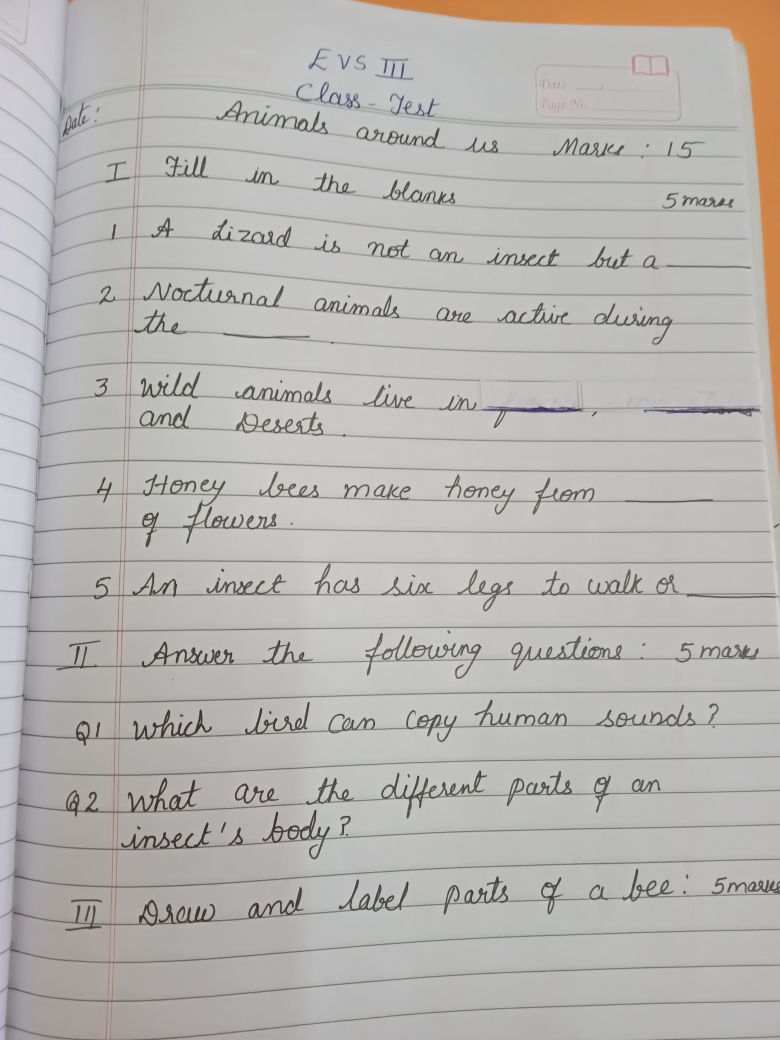 EVS III
Class-Test
Date
Page No.
Date:
Animals around us Marks: 15
I Fill in the blanks 5 marks
1 A Lizard is not an insect but a ______
2 Nocturnal animals are active during
the ______.
3 Wild animals live in ______, ______
and Deserts.
4 Honey bees make honey from ______
of flowers.
5 An insect has six legs to walk or ______
II Answer the following questions: 5 marks
Q1 Which bird can copy human sounds?
Q2 What are the different parts of an
insect's body?
III Draw and label parts of a bee: 5 marks